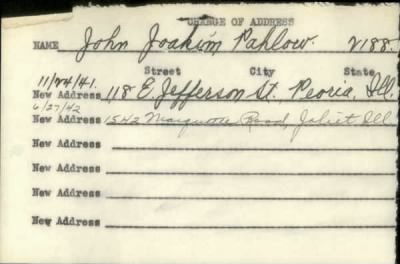 CHANGE OF ADDRESS
NAME John Joakim Pahlow. 2188.
Street City State
11/24/41.
New Address 118 E. Jefferson St. Peoria, Ill.
6/27/42
New Address 1542 Marquette Road, Joliet, Ill
New Address
New Address
New Address
New Address